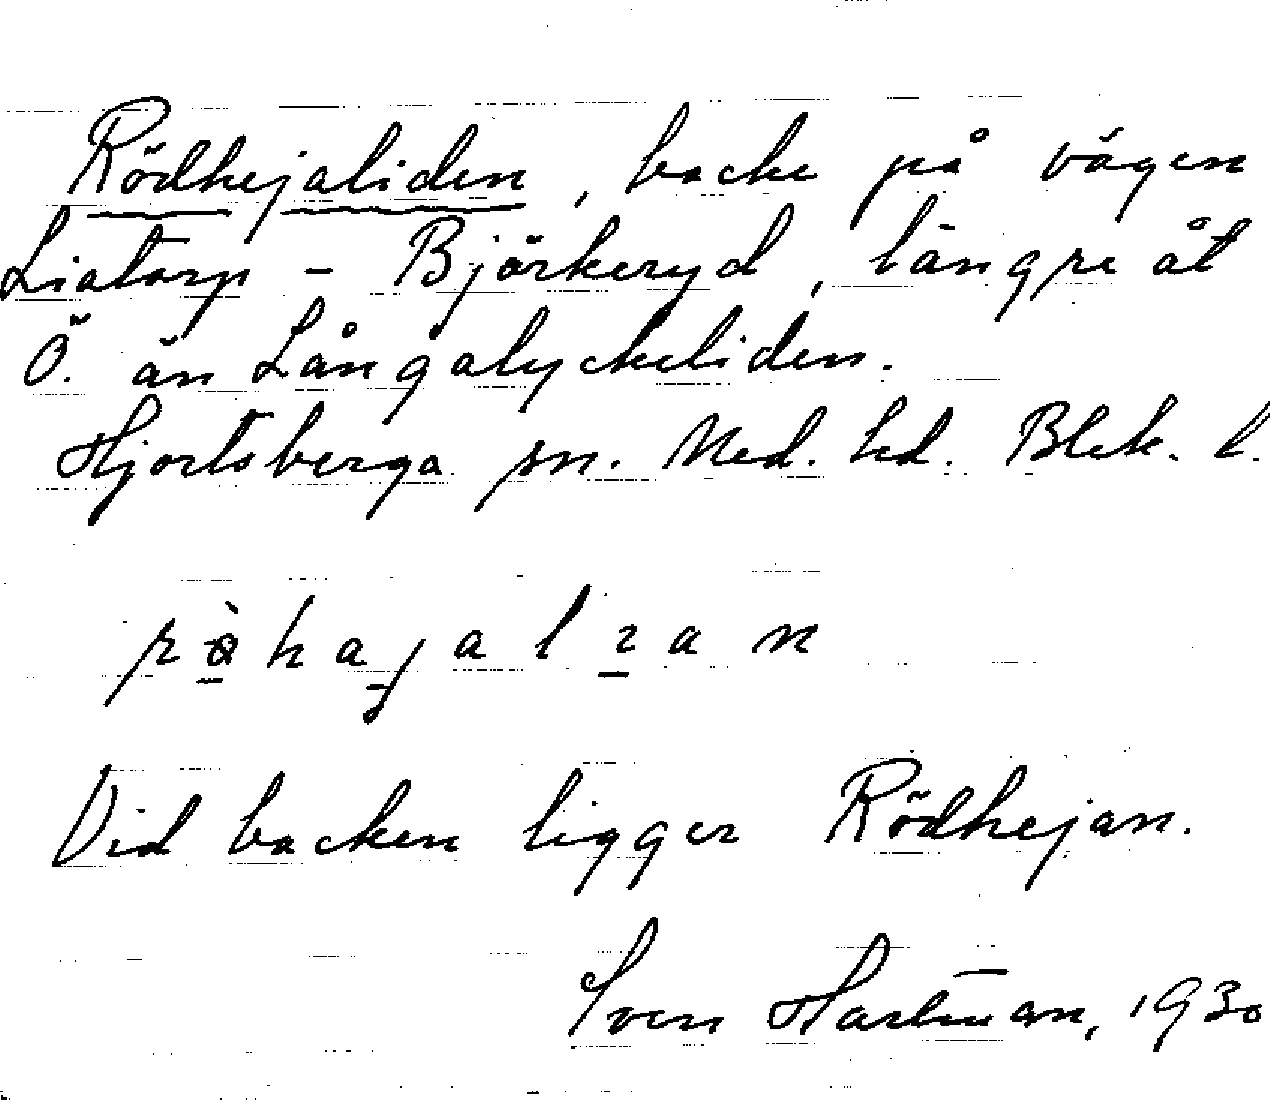 Rödhejaliden, backe på vägen
Liatorp - Björkeryd, längre åt
Ö. än Långalyckeliden.
Hjortsberga sn. Med. hd. Blek. l.
Vid backen ligger Rödhejan.
Sven Hartman, 1930